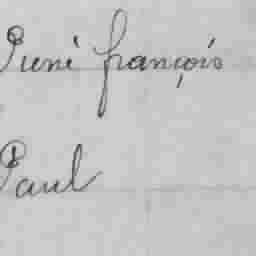 Puni françois
Paul